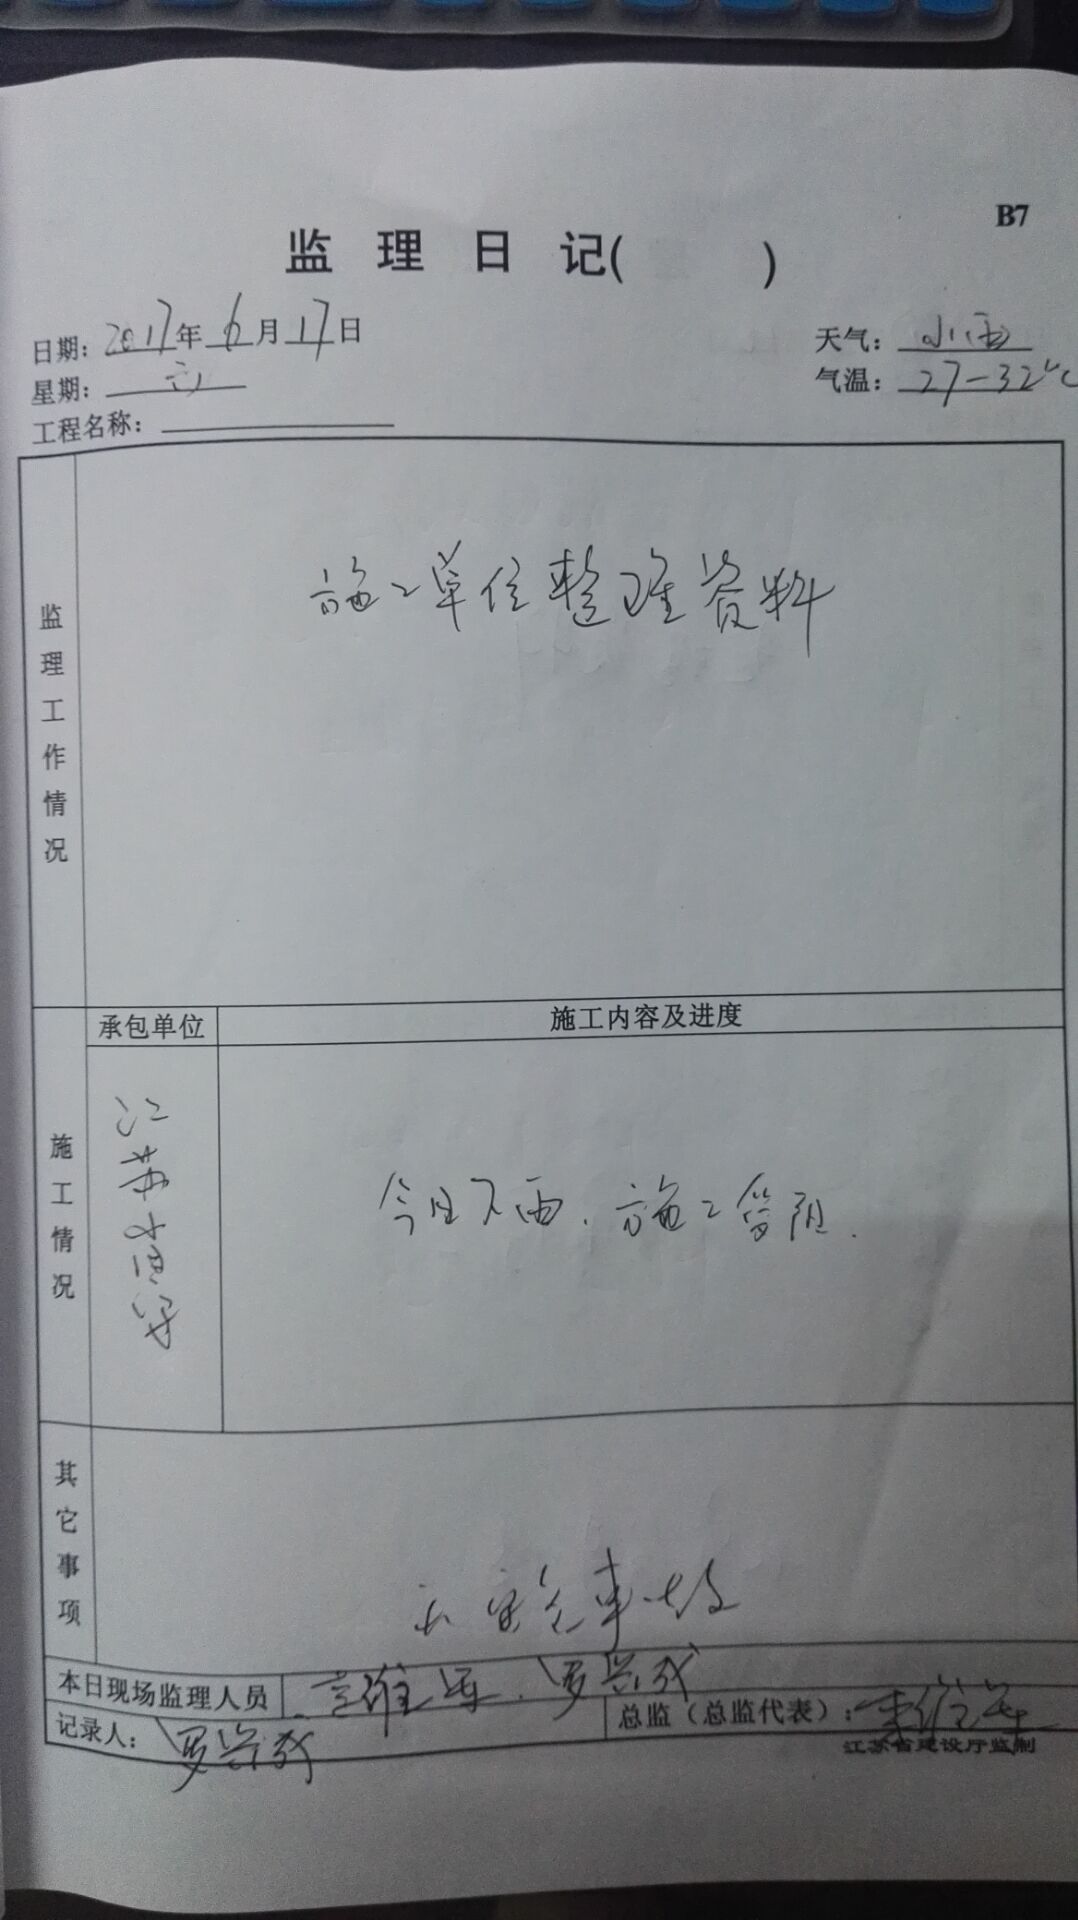 B7
监理日记( )
日期: 2017年6月17日
天气: 小雨
星期: 六
气温: 27-32℃
工程名称:
监理工作情况
施工单位整理资料
承包单位
施工内容及进度
施工情况
江苏
今日下雨.施工暂阻.
其它事项
无安全事故
本日现场监理人员
罗兴成
记录人: 罗兴成
总监（总监代表）:
江苏省建设厅监制